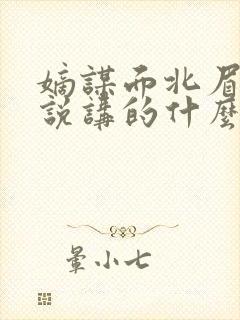 嫡謀而北眉
説講的什麼
暈小七